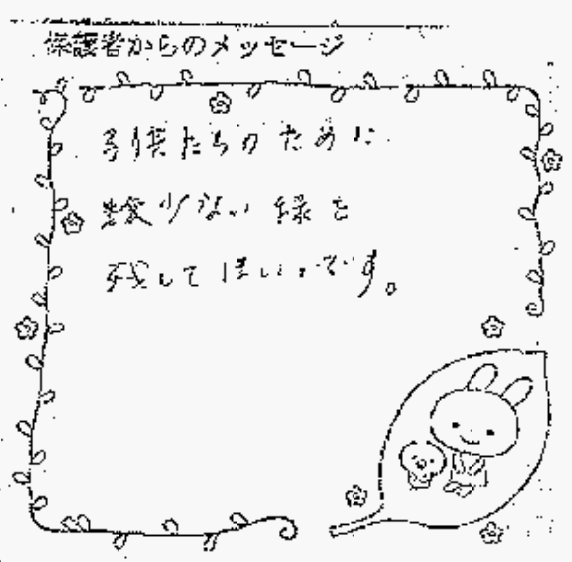 保護者からのメッセージ
子供たちのために
数少ない緑を
残してほしいです。